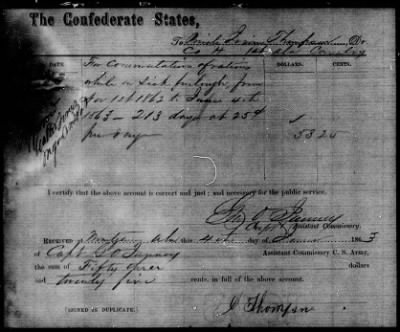 The Confederate States,
To Private Thompson Dr
Co H Ala Cavalry
DATE. DOLLARS. CENTS.
For Commutation of rations
while on sick furlough from
Nov 1st 1862 to June 4th
1863 – 213 days at 25¢
per day
53 25
I certify that the above account is correct and just; and necessary for the public service.
Capt & Assistant Commissary.
RECEIVED at Montgomery Ala this 4th day of 1863
of Capt Assistant Commissary C. S. Army,
the sum of Fifty three dollars
and twenty five cents, in full of the above account.
[SIGNED IN DUPLICATE.] J Thompson